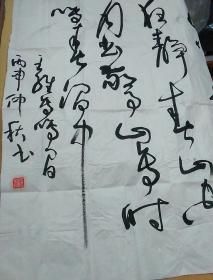 夜静春山空
月出驚山鸟时
鸣春涧中
王維鸟鸣涧
丙申仲秋书